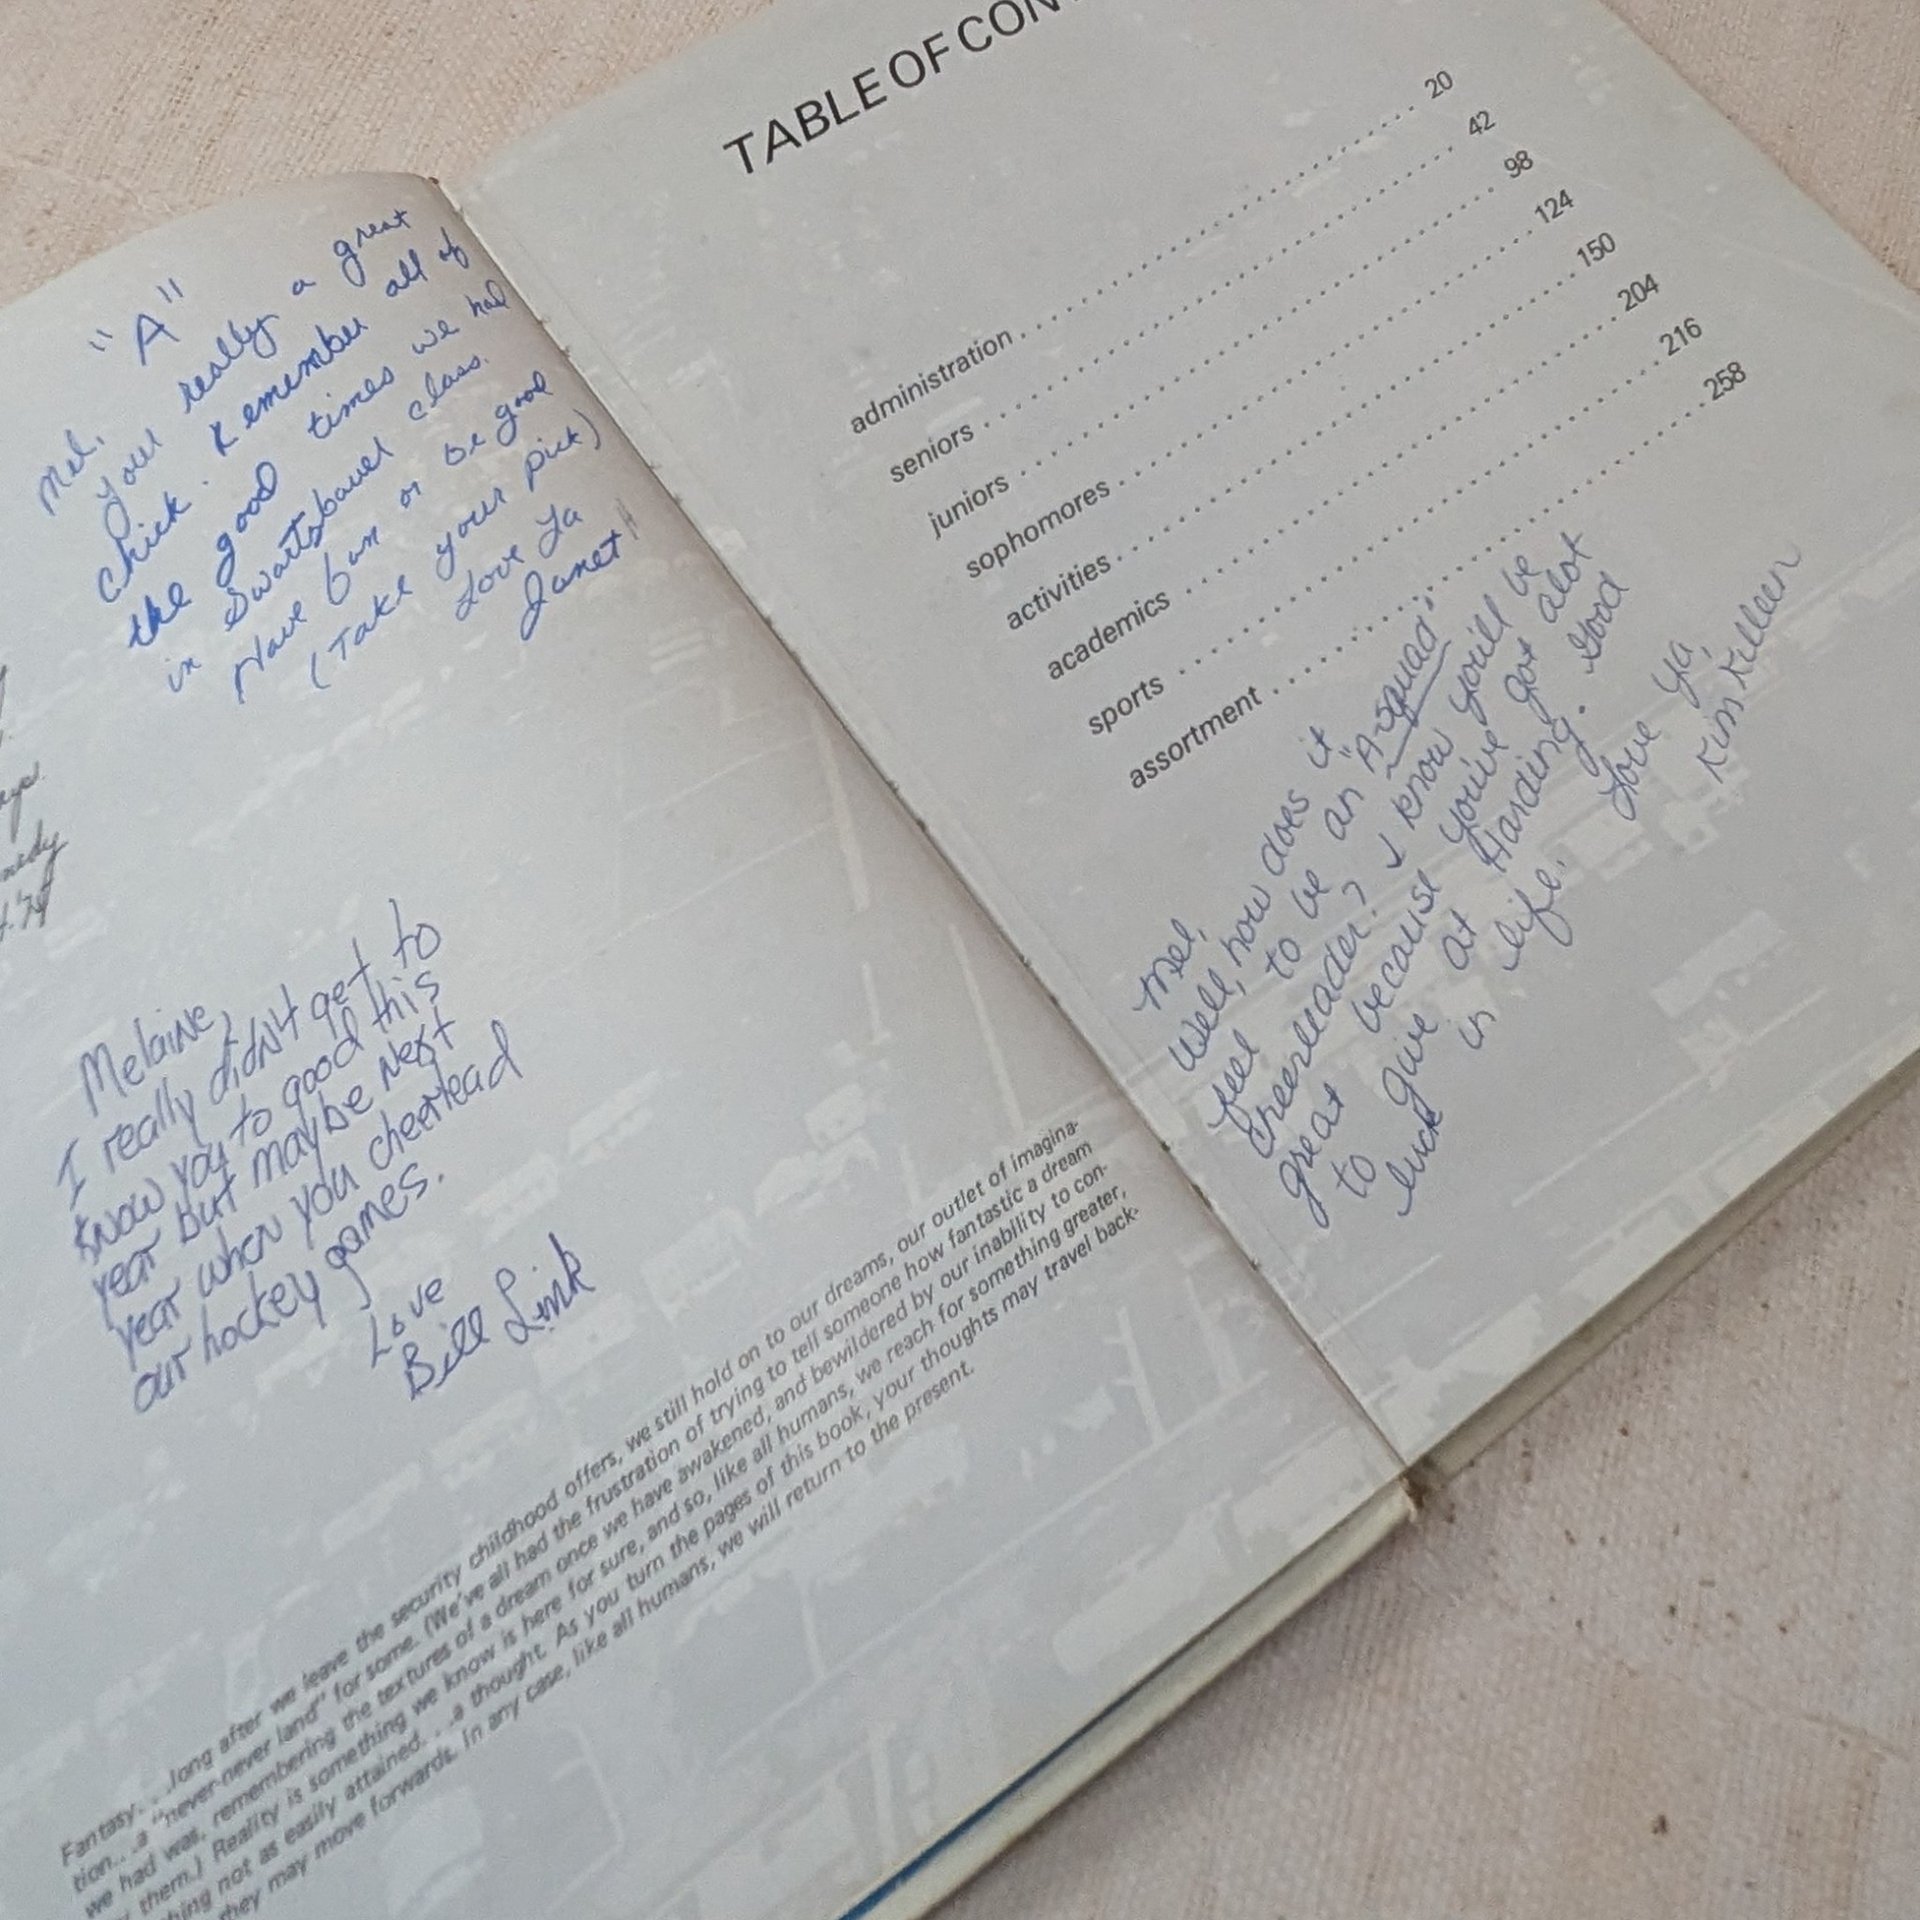 "A"
Mel,
your really a great
chick. Remember all of
the good times we had
in Swartsbauel class.
Have fun or be good
(Take your pick)
Love Ya
Janet"
Melaine,
I really didn't get to
know you to good this
year but maybe next
year when you cheerlead
our hockey games.
Love
Bill Link
Fantasy. . .long after we leave the security childhood offers, we still hold on to our dreams, our outlet of imagina-
tion. . .a "never-never land" for some. (We've all had the frustration of trying to tell someone how fantastic a dream
we had was, remembering the textures of a dream once we have awakened, and bewildered by our inability to con-
them.) Reality is something we know is here for sure, and so, like all humans, we reach for something greater,
not as easily attained. . .a thought. As you turn the pages of this book, your thoughts may travel back-
they may move forwards. In any case, like all humans, we will return to the present.
TABLE OF CON
administration 20
seniors 42
juniors 98
sophomores 124
activities 150
academics 204
sports 216
assortment 258
Mel,
Well, how does it
feel to be an "A-squad"
cheerleader? I know you'll be
great because you've got alot
to give at Harding. Good
luck in life.
Love Ya,
Kim Killeen